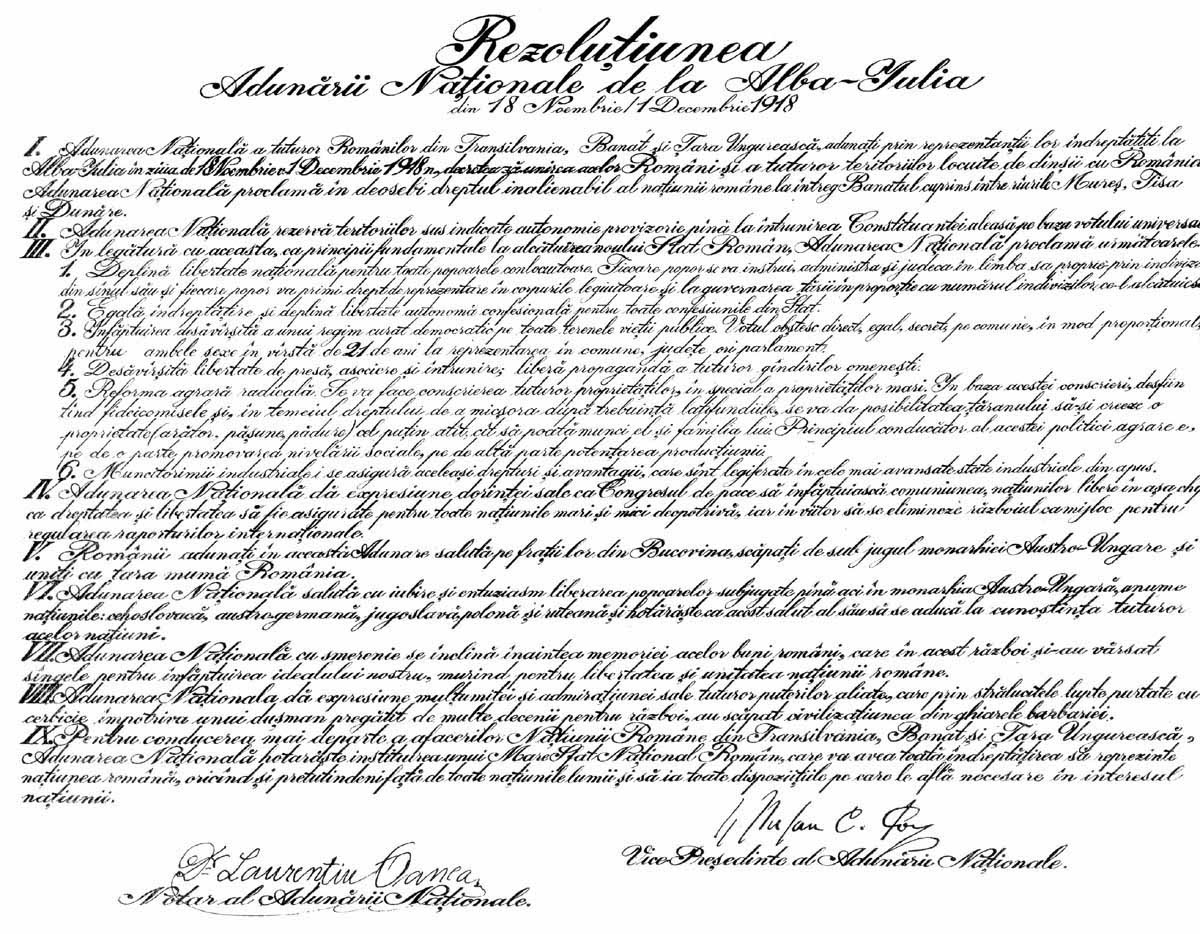 Rezoluțiunea
Adunării Naționale de la Alba-Iulia
din 18 Noembrie/1 Decembrie 1918
I. Adunarea Națională a tuturor Românilor din Transilvania, Banat și Țara Ungurească, adunați prin reprezentanții lor îndreptățiți la
Alba-Iulia în ziua de 18 Noembrie 1 Decembrie 1918 n, decretează unirea acelor Români și a tuturor teritoriilor locuite de dinșii cu România
Adunarea Națională proclamă în deosebi dreptul inalienabil al națiunii române la întreg Banatul cuprins între rîurile Mureș, Tisa
și Dunăre.
II. Adunarea Națională rezervă teritoriilor sus indicate autonomie provizorie pînă la întrunirea Constituantei aleasă pe baza votului universa
III. In legătură cu aceasta, ca principii fundamentale la alcătuirea noului Stat Român, Adunarea Națională proclamă următoarele
1. Deplină libertate națională pentru toate popoarele conlocuitoare. Fiecare popor se va instrui, administra și judeca în limba sa proprie prin indiviz
din sînul său și fiecare popor va primi drept de reprezentare în corpurile legiuitoare și la guvernarea țării în proporție cu numărul indivizilor, ce-l alcătuiesc
2. Egală îndreptățire și deplină libertate autonomă confesională pentru toate confesiunile din Stat.
3. Înfăptuirea desăvîrșită a unui regim curat democratic pe toate terenele vieții publice. Votul obștesc direct, egal, secret, pe comune, în mod proporțional
pentru ambele sexe în vîrstă de 21 de ani la reprezentarea în comune, județe ori parlament.
4. Desăvîrșită libertate de presă, asociere și întrunire; liberă propagandă a tuturor gîndirilor omenești.
5. Reforma agrară radicală. Se va face conscrierea tuturor proprietăților, în special a proprietăților mari. In baza acestei conscrieri, desfiin
țînd fideicomisele și, în temeiul dreptului de a micșora după trebuință latifundiile, se va da posibilitatea țăranului să-și creeze o
proprietate (arător, pășune, pădure) cel puțin atît cît să poată munci el și familia lui. Principiul conducător al acestei politici agrare e,
pe de o parte promovarea nivelării sociale, pe de altă parte potențarea producțiunii
6. Muncitorimii industriale i se asigură aceleași drepturi și avantagii, care sînt legiferate în cele mai avansate state industriale din apus.
IV. Adunarea Națională dă expresiune dorinței sale ca Congresul de pace să înfăptuiască comuniunea, națiunilor libere în așa chip
ca dreptatea și libertatea să fie asigurate pentru toate națiunile mari și mici deopotrivă, iar în viitor să se elimineze războiul ca mijloc pentru
regularea raporturilor internaționale.
V. Românii adunați în această Adunare salută pe frații lor din Bucovina, scăpați de sub jugul monarhiei Austro-Ungare și
uniți cu țara mumă România.
VI. Adunarea Națională salută cu iubire și entuziasm liberarea popoarelor subjugate pînă aci în monarhia Austro-Ungară, anume
națiunile: cehoslovacă, austrogermană, jugoslavă, polonă și ruteană și hotărăște ca acest salut al său să se aducă la cunoștința tuturor
acelor națiuni.
VII. Adunarea Națională cu smerenie se înclină înaintea memoriei acelor buni români, care în acest război și-au vărsat
sîngele pentru înfăptuirea idealului nostru, murind pentru libertatea și unitatea națiunii române.
VIII. Adunarea Naționala dă expresiune mulțumitei și admirațiunei sale tuturor puterilor aliate, care prin strălucitele lupte purtate cu
cerbicie împotriva unui dușman pregătit de multe decenii pentru război, au scăpat civilizațiunea din ghiarele barbariei.
IX. Pentru conducerea mai departe a afacerilor Națiunii Române din Transilvania, Banat și Țara Ungurească,
Adunarea Națională hotărăște instituirea unui Mare Sfat Național Român, care va avea toată îndreptățirea să reprezinte
națiunea română, oricînd și pretutindeni față de toate națiunile lumii și să ia toate dispozițiile pe care le află necesare în interesul
națiunii.
Dr Laurențiu Oanea
Notar al Adunării Naționale.
C. Pop
Vice Președinte al Adunării Naționale.